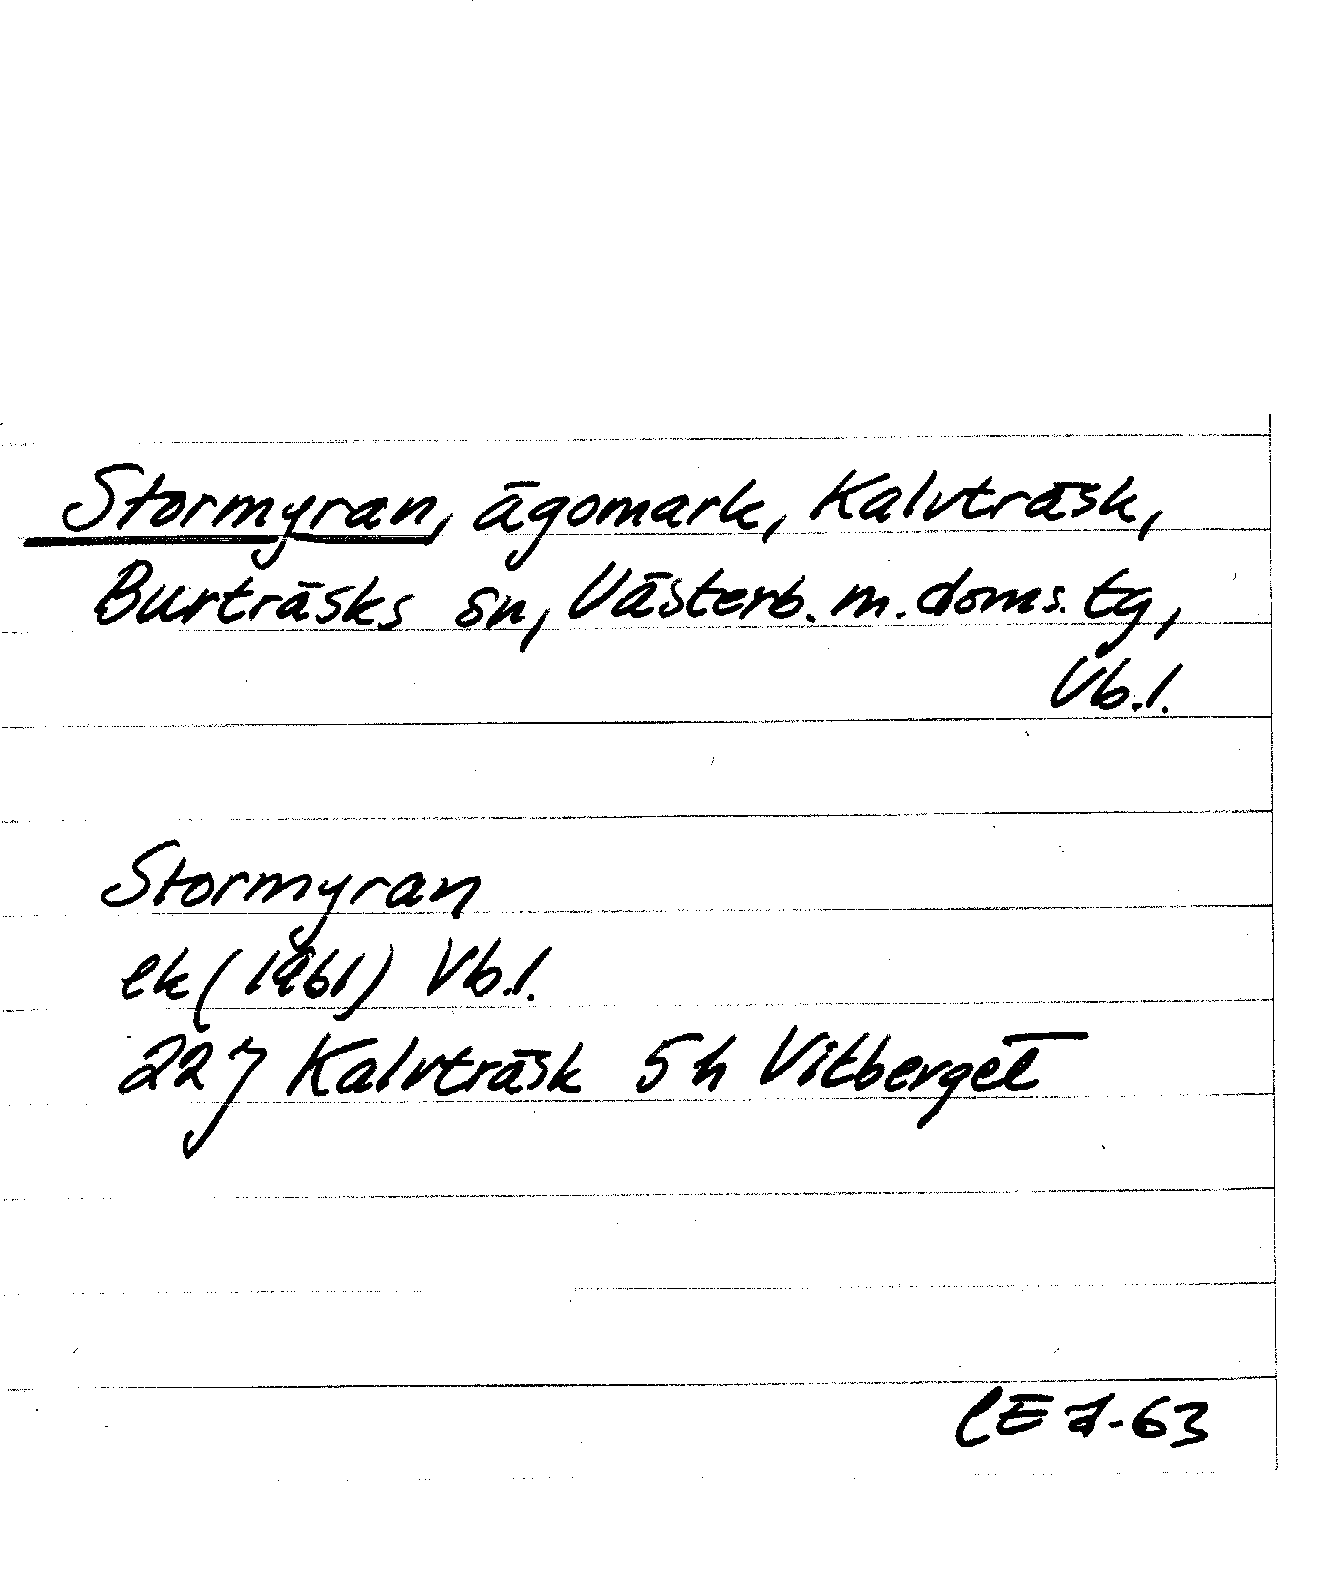 Stormyran, ägomark, Kalvträsk,
Burträsks sn, Västerb. m. doms. tg,
Vb. l.
Stormyran
ek (1961) Vb. l.
22 J Kalvträsk 5 h Vitberget
CE 7-63